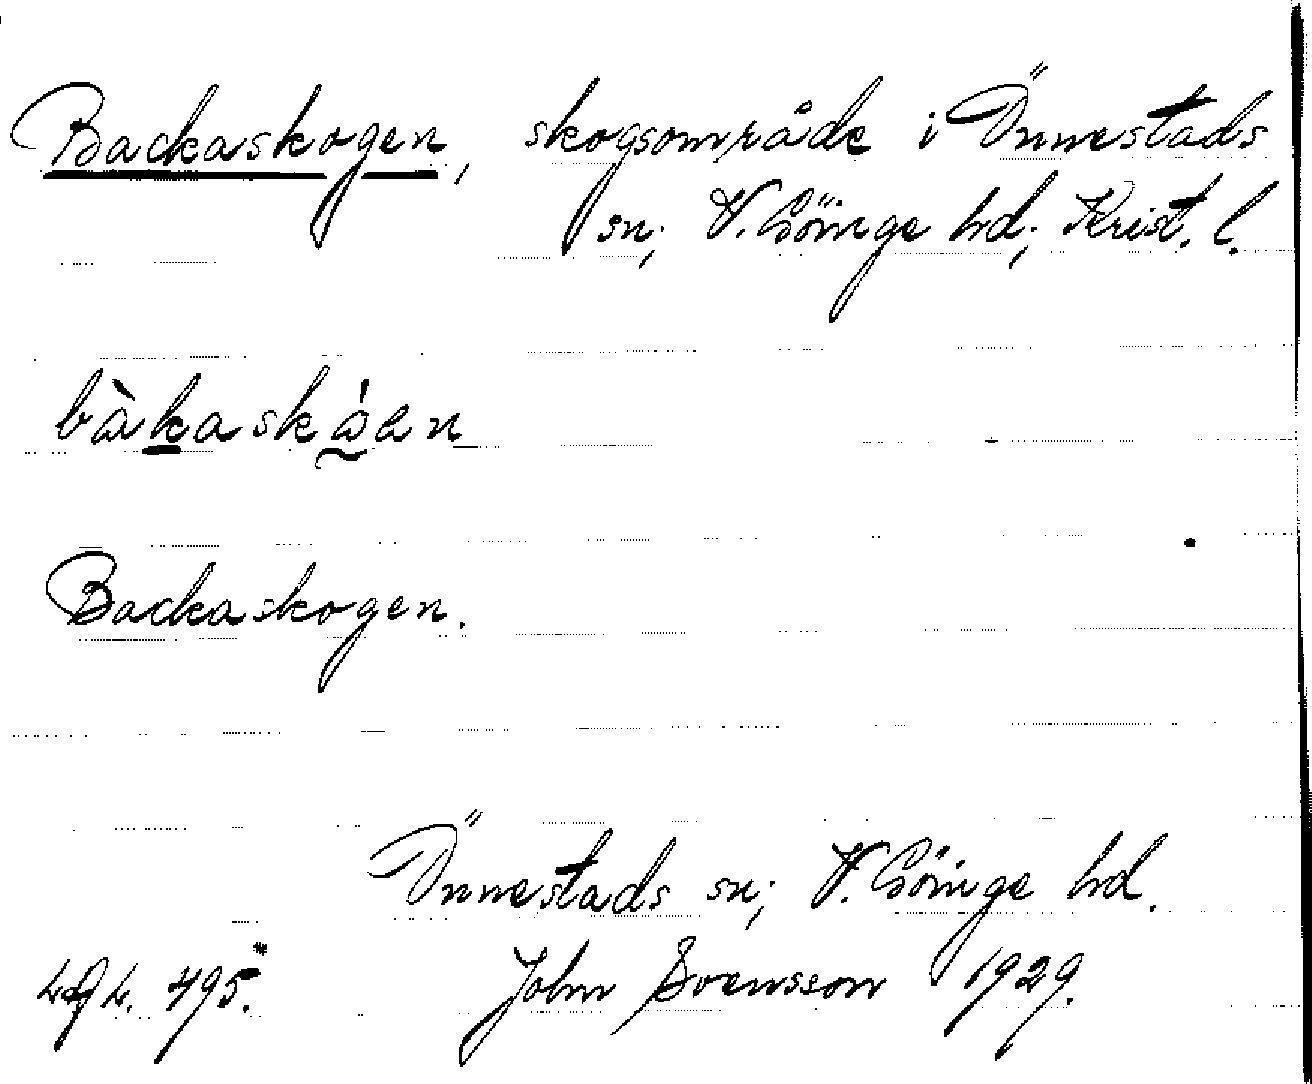 Backaskogen, skogsområde i Önnestads
sn; V. Göinge hd; Krist. l.
bàkaskåen
Backaskogen.
Önnestads sn; V. Göinge hd.
495. John Svensson 1929.